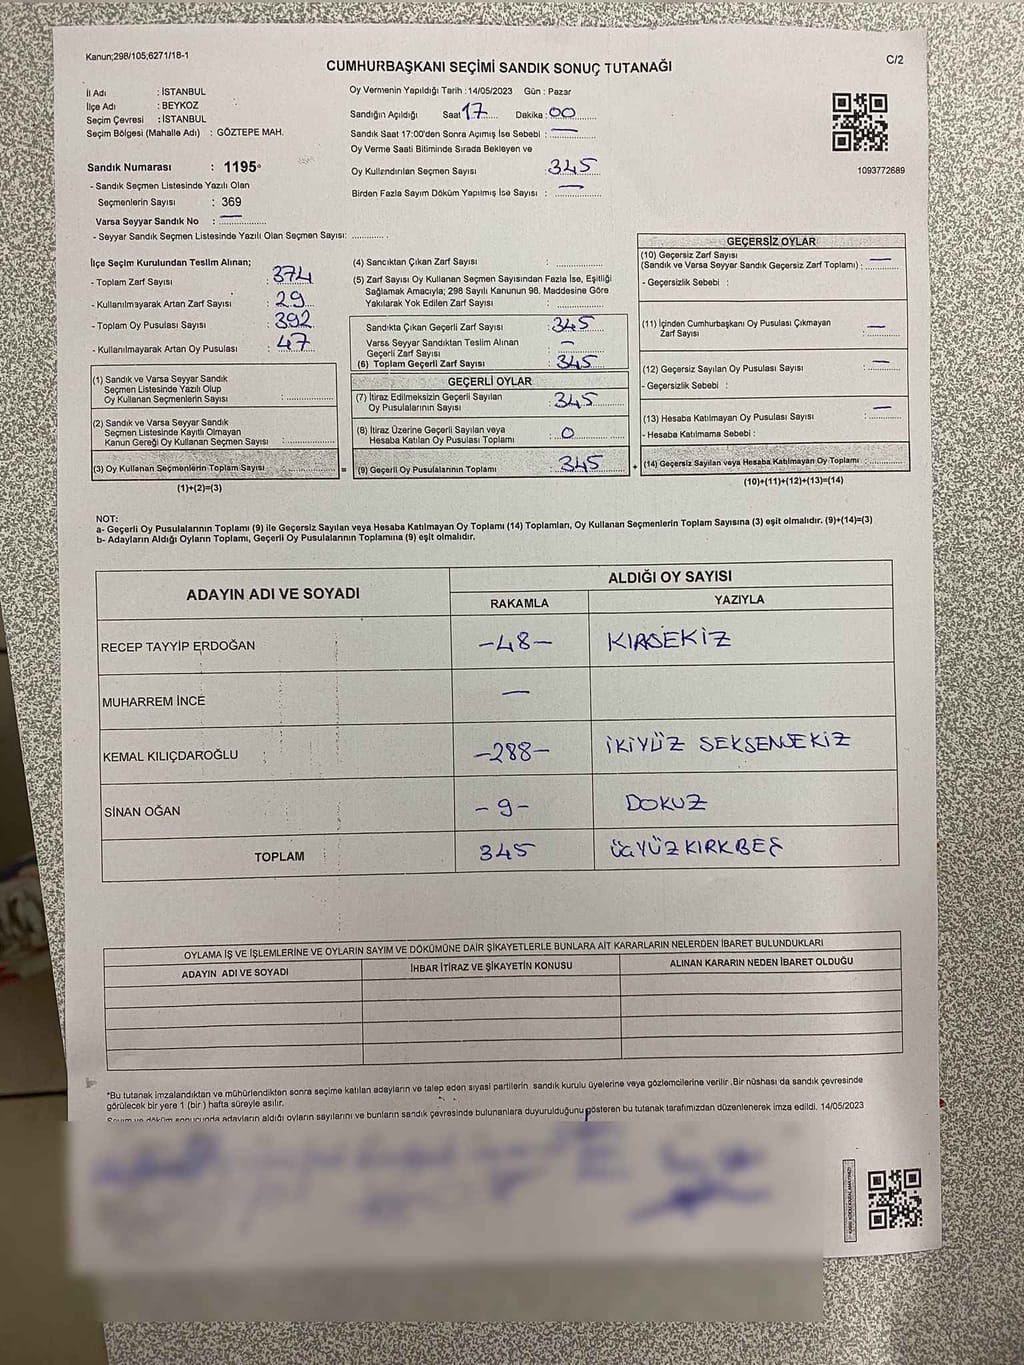 Kanun;298/105;6271/18-1
CUMHURBAŞKANI SEÇİMİ SANDIK SONUÇ TUTANAĞI
C/2
İl Adı : İSTANBUL
İlçe Adı : BEYKOZ
Seçim Çevresi : İSTANBUL
Seçim Bölgesi (Mahalle Adı) : GÖZTEPE MAH.
Sandık Numarası : 1195
- Sandık Seçmen Listesinde Yazılı Olan
Seçmenlerin Sayısı : 369
Varsa Seyyar Sandık No : —
- Seyyar Sandık Seçmen Listesinde Yazılı Olan Seçmen Sayısı: ............
Oy Vermenin Yapıldığı Tarih : 14/05/2023 Gün : Pazar
Sandığın Açıldığı Saat 17 Dakika : 00
Sandık Saat 17:00'den Sonra Açımış İse Sebebi : —
Oy Verme Saati Bitiminde Sırada Bekleyen ve
Oy Kullandırılan Seçmen Sayısı : 345
Birden Fazla Sayım Döküm Yapılmış İse Sayısı : —
1093772689
İlçe Seçim Kurulundan Teslim Alınan;
- Toplam Zarf Sayısı : 374
- Kullanılmayarak Artan Zarf Sayısı : 29
- Toplam Oy Pusulası Sayısı : 392
- Kullanılmayarak Artan Oy Pusulası : 47
(1) Sandık ve Varsa Seyyar Sandık
Seçmen Listesinde Yazılı Olup
Oy Kullanan Seçmenlerin Sayısı : ............
(2) Sandık ve Varsa Seyyar Sandık
Seçmen Listesinde Kayıtlı Olmayan
Kanun Gereği Oy Kullanan Seçmen Sayısı : ............
(3) Oy Kullanan Seçmenlerin Toplam Sayısı : ............ =
(1)+(2)=(3)
(4) Sandıktan Çıkan Zarf Sayısı : ............
(5) Zarf Sayısı Oy Kullanan Seçmen Sayısından Fazla İse, Eşitliği
Sağlamak Amacıyla; 298 Sayılı Kanunun 98. Maddesine Göre
Yakılarak Yok Edilen Zarf Sayısı : ............
Sandıkta Çıkan Geçerli Zarf Sayısı : 345
Varsa Seyyar Sandıktan Teslim Alınan
Geçerli Zarf Sayısı : —
(6) Toplam Geçerli Zarf Sayısı : 345
GEÇERLİ OYLAR
(7) İtiraz Edilmeksizin Geçerli Sayılan
Oy Pusulalarının Sayısı : 345
(8) İtiraz Üzerine Geçerli Sayılan veya
Hesaba Katılan Oy Pusulası Toplamı : 0
(9) Geçerli Oy Pusulalarının Toplamı : 345 +
GEÇERSİZ OYLAR
(10) Geçersiz Zarf Sayısı
(Sandık ve Varsa Seyyar Sandık Geçersiz Zarf Toplamı) : —
- Geçersizlik Sebebi :
(11) İçinden Cumhurbaşkanı Oy Pusulası Çıkmayan
Zarf Sayısı : —
(12) Geçersiz Sayılan Oy Pusulası Sayısı : —
- Geçersizlik Sebebi :
(13) Hesaba Katılmayan Oy Pusulası Sayısı : —
- Hesaba Katılmama Sebebi :
(14) Geçersiz Sayılan veya Hesaba Katılmayan Oy Toplamı : ............
(10)+(11)+(12)+(13)=(14)
NOT:
a- Geçerli Oy Pusulalarının Toplamı (9) ile Geçersiz Sayılan veya Hesaba Katılmayan Oy Toplamı (14) Toplamları, Oy Kullanan Seçmenlerin Toplam Sayısına (3) eşit olmalıdır. (9)+(14)=(3)
b- Adayların Aldığı Oyların Toplamı, Geçerli Oy Pusulalarının Toplamına (9) eşit olmalıdır.
ADAYIN ADI VE SOYADI
ALDIĞI OY SAYISI
RAKAMLA YAZIYLA
RECEP TAYYİP ERDOĞAN -48- KIRSEKİZ
MUHARREM İNCE —
KEMAL KILIÇDAROĞLU -288- İKİYÜZ SEKSENSEKİZ
SİNAN OĞAN -9- DOKUZ
TOPLAM 345 ÜÇYÜZKIRKBEŞ
OYLAMA İŞ VE İŞLEMLERİNE VE OYLARIN SAYIM VE DÖKÜMÜNE DAİR ŞİKAYETLERLE BUNLARA AİT KARARLARIN NELERDEN İBARET BULUNDUKLARI
ADAYIN ADI VE SOYADI İHBAR İTİRAZ VE ŞİKAYETİN KONUSU ALINAN KARARIN NEDEN İBARET OLDUĞU
*Bu tutanak imzalandıktan ve mühürlendikten sonra seçime katılan adayların ve talep eden siyasi partilerin sandık kurulu üyelerine veya gözlemcilerine verilir .Bir nüshası da sandık çevresinde
görülecek bir yere 1 (bir ) hafta süreyle asılır.
Sayım ve döküm sonucunda adayların aldığı oyların sayılarını ve bunların sandık çevresinde bulunanlara duyurulduğunu gösteren bu tutanak tarafımızdan düzenlenerek imza edildi. 14/05/2023